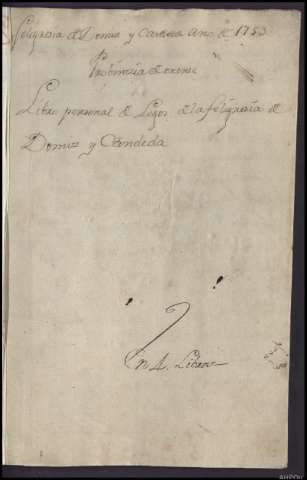 feligresia de Domiz y Carzeda Ano de 1753
Probinzia de orense
Libro personal de Legos de la feligresia de
Domiz y Candeda
n 4. Libros